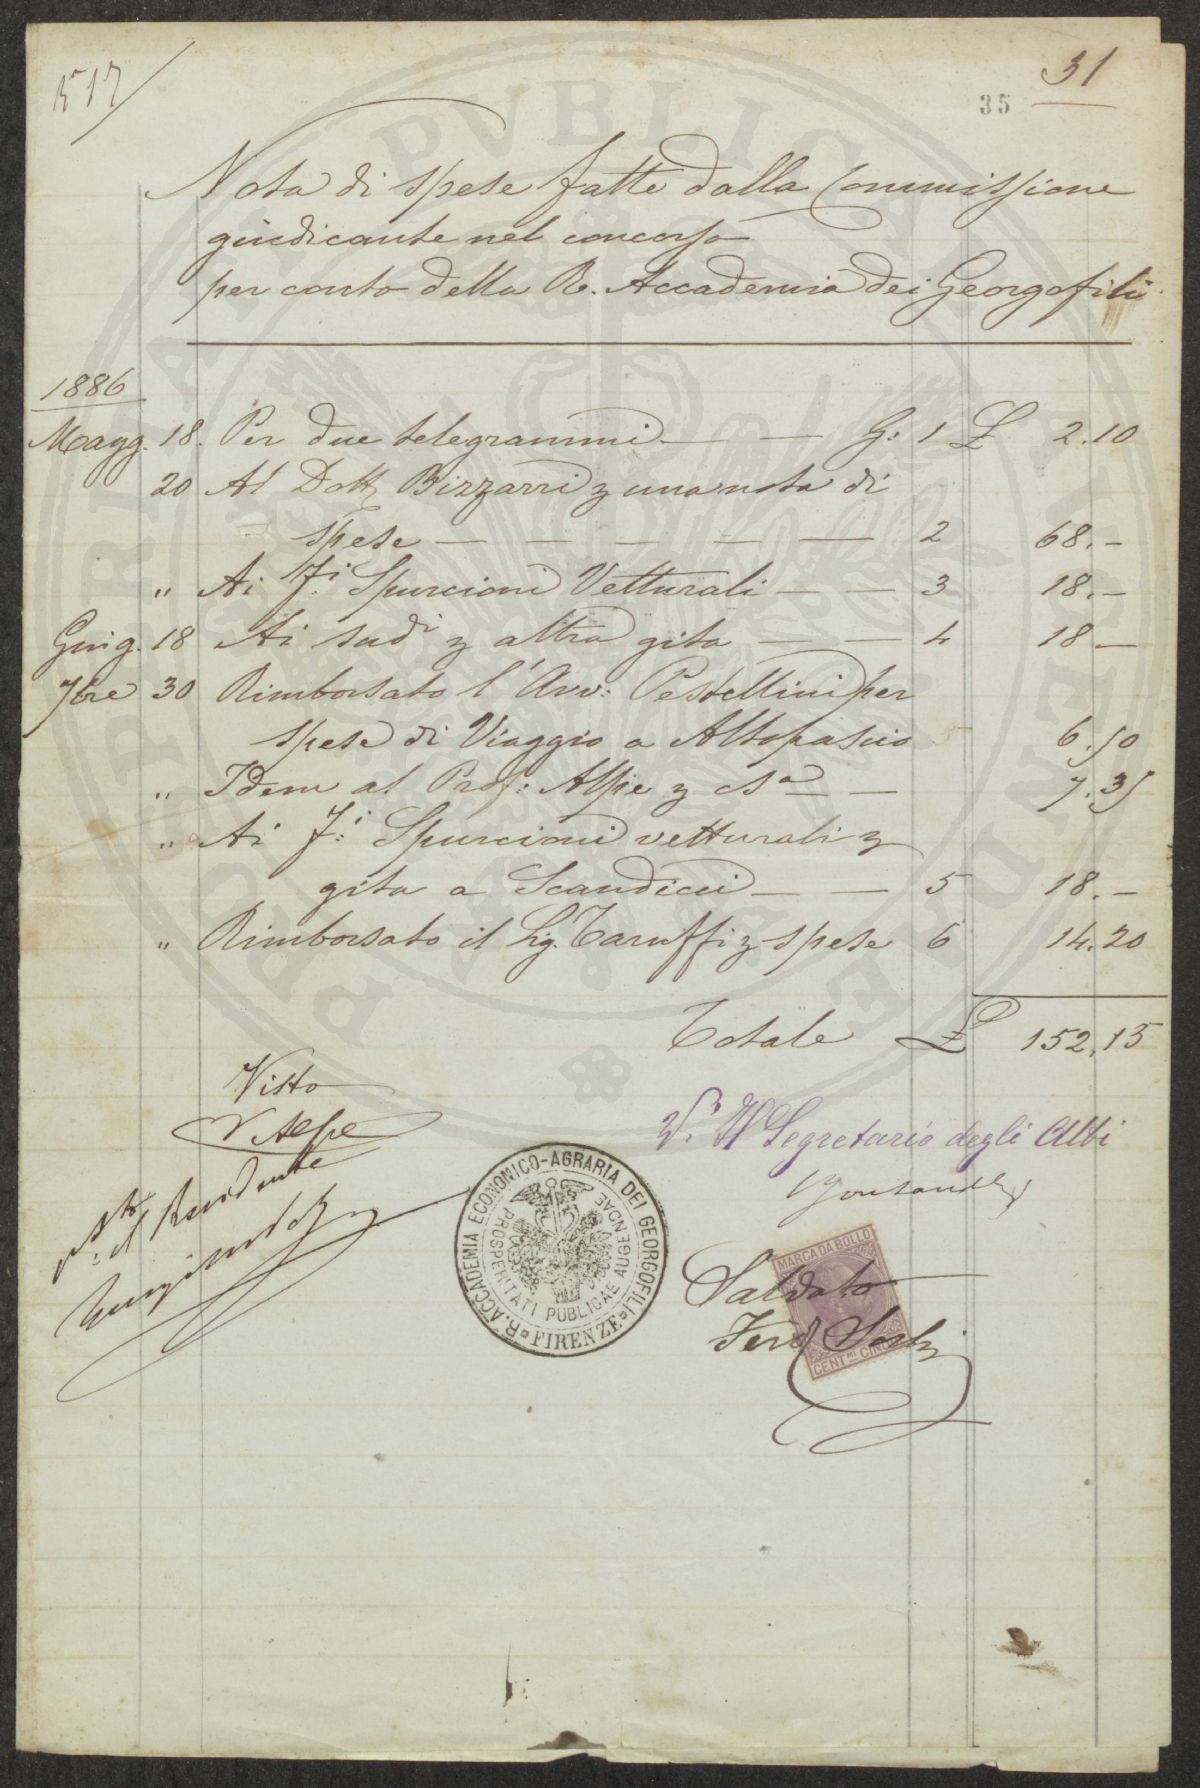 31
35
Nota di spese fatte dalla Commissione
giudicante nel concorso
per conto della R. Accademia dei Georgofili
1886
Magg. 18. Per due telegrammi — — G: 1 £ 2.10
20 Al Dott. Bizzarri p una nota di
spese — — — — — 2 68.-
" Ai F.i Spurcioni Vetturali — — 3 18.-
Giug. 18 Ai sudi p altra gita — — 4 18 —
7bre 30 Rimborsato l'Avv: Pestellini per
spese di Viaggio a Altopascio 6.50
" Idem al Prof: Alpe p Ca — — 7.35
" Ai F.i Spurcioni vetturali p
gita a Scandicci — — 5 18.-
" Rimborsato il Sig. Taruffi p spese 6 14.20
Totale £ 152,15
Visto
V Alpe
il Presidente
V. Il Segretario degli Atti
R. ACCADEMIA ECONOMICO-AGRARIA DEI GEORGOFILI
FIRENZE
PROSPERITATI PUBLICAE AUGENDAE
MARCA DA BOLLO
CENT.MI CINQUE
Saldato
PROSPERITATI PVBLICAE AVGENDAE